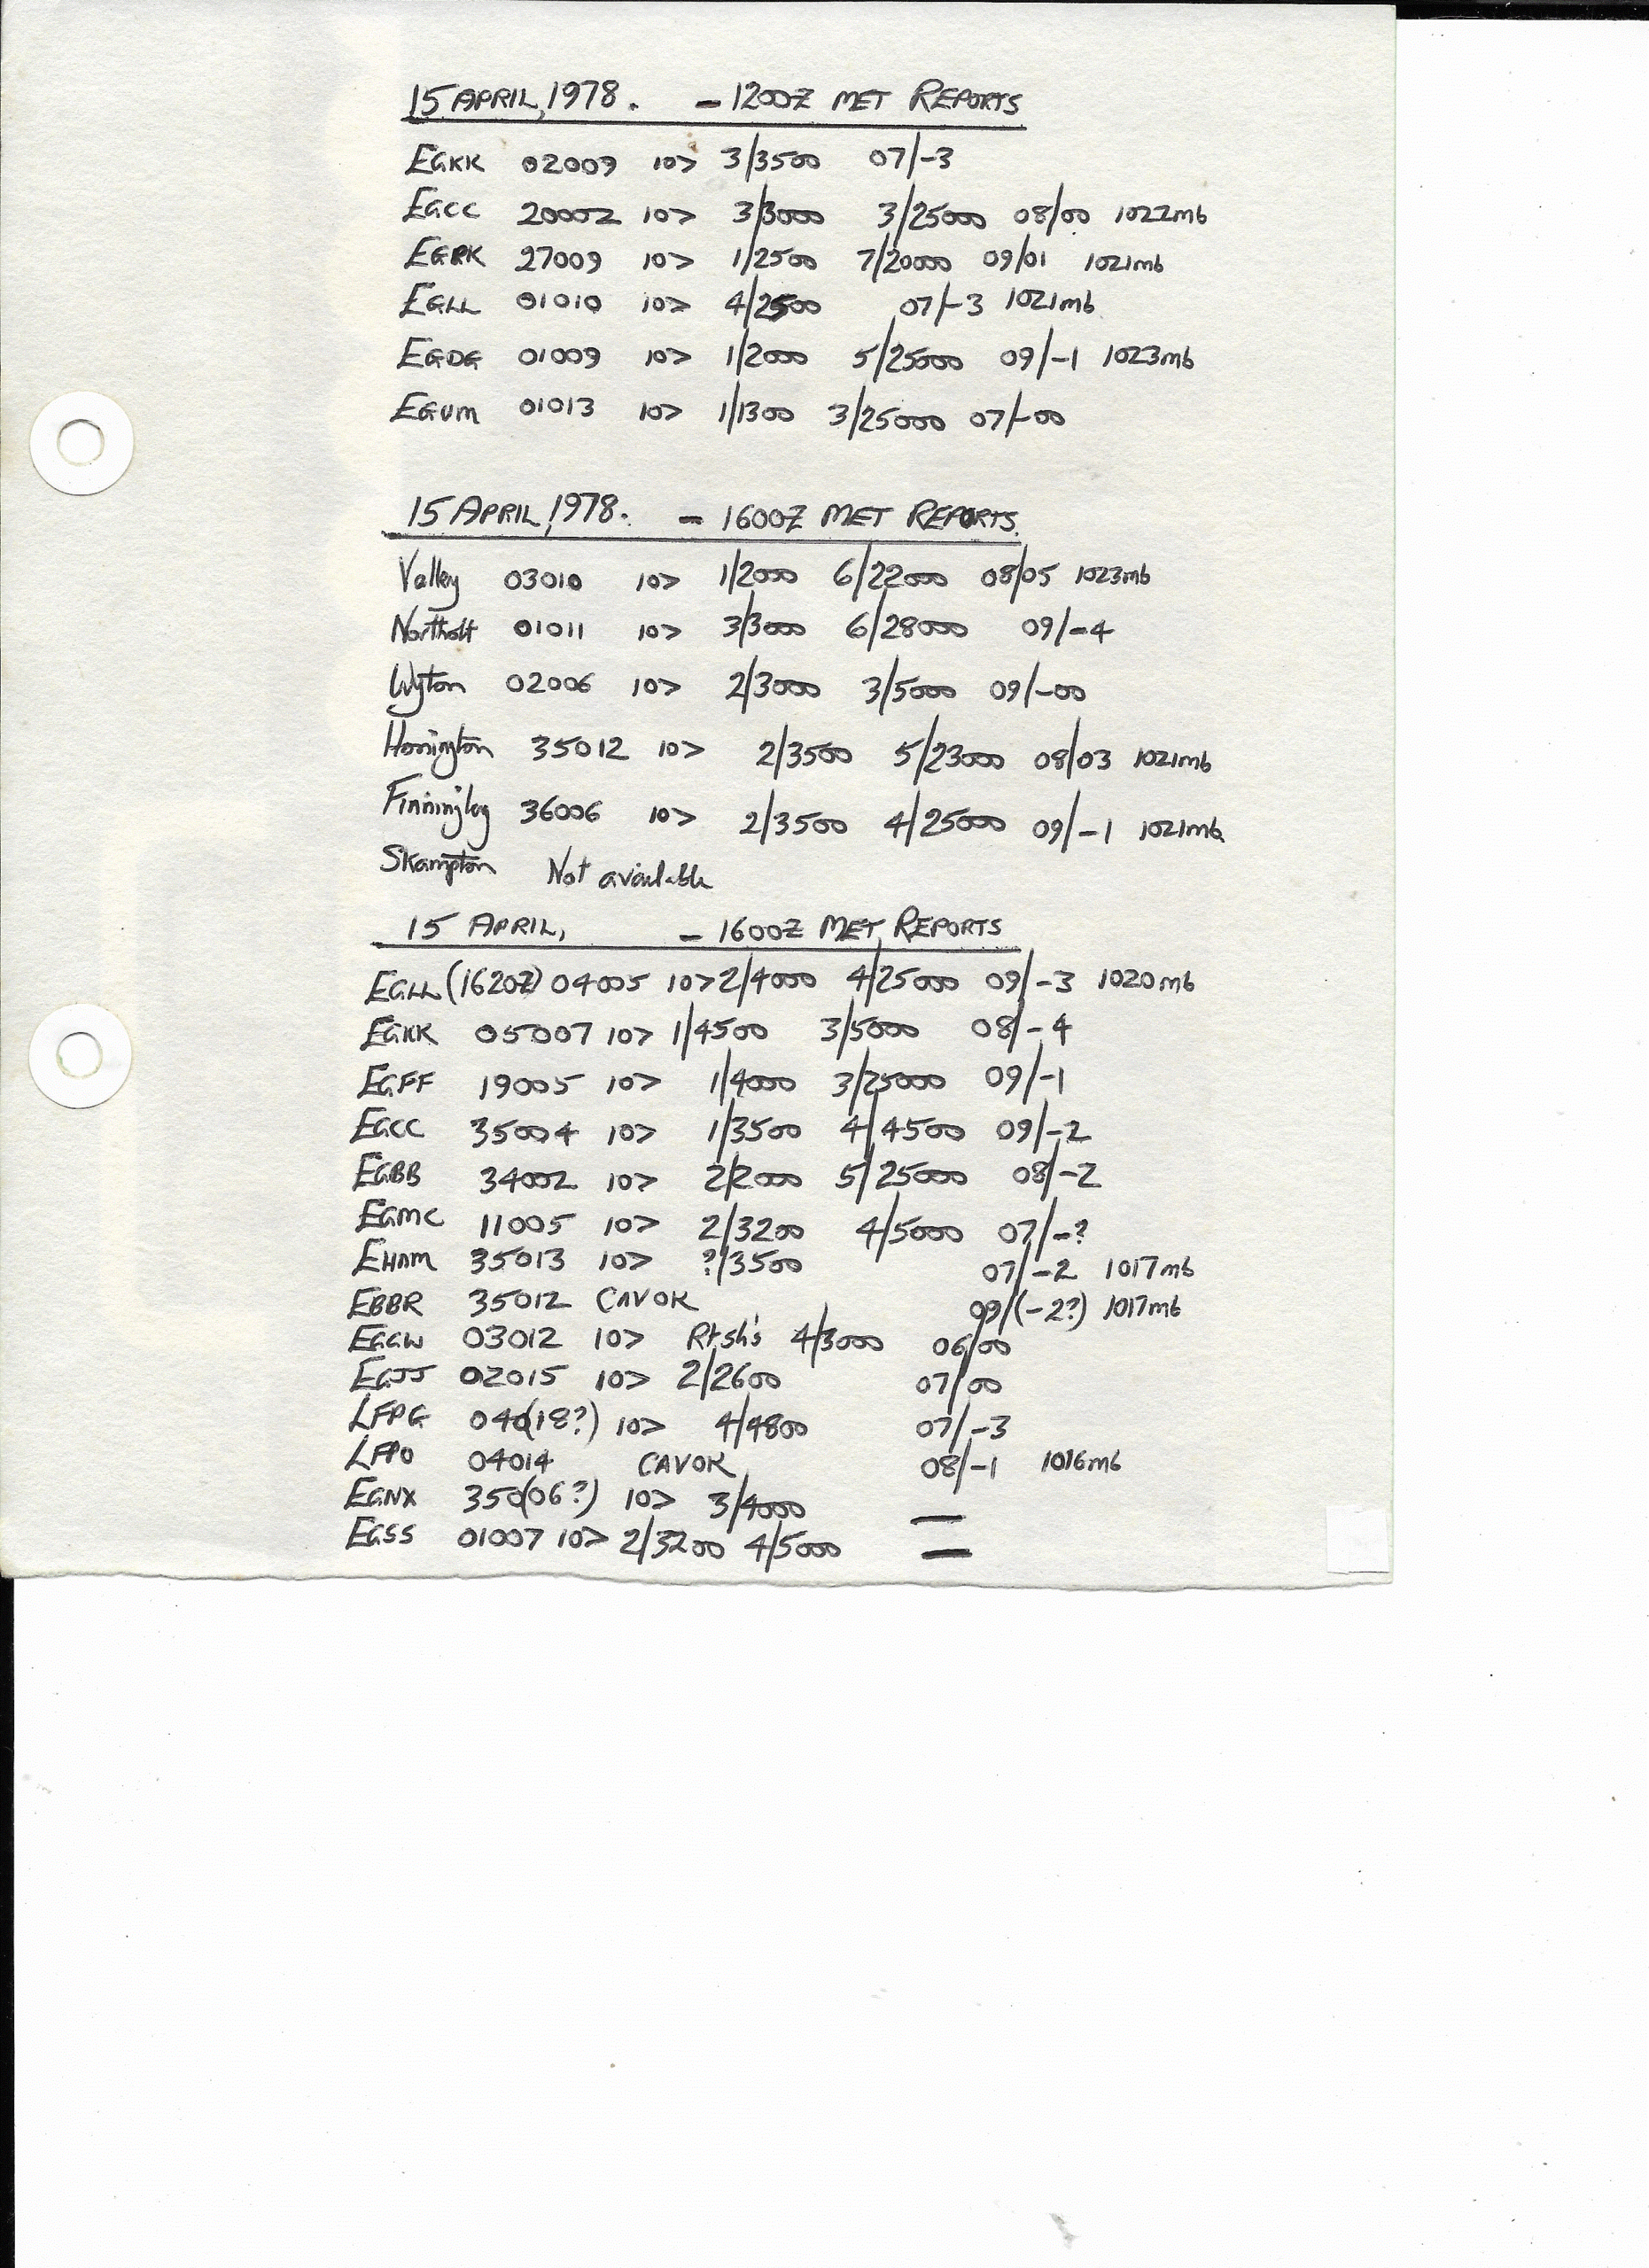 15 APRIL, 1978. - 1200Z MET REPORTS
EGKK 02009 10> 3/3500 07/-3
EGCC 20002 10> 3/3000 3/25000 08/00 1022mb
EGPK 27009 10> 1/2500 7/20000 09/01 1021mb
EGLL 01010 10> 4/2500 07/-3 1021mb
EGDG 01009 10> 1/2000 5/25000 09/-1 1023mb
EGUM 01013 10> 1/1300 3/25000 07/-00
15 APRIL, 1978. - 1600Z MET REPORTS.
Valley 03010 10> 1/2000 6/22000 08/05 1023mb
Northolt 01011 10> 3/3000 6/28000 09/-4
Wyton 02006 10> 2/3000 3/5000 09/-00
Honington 35012 10> 2/3500 5/23000 08/03 1021mb
Finningley 36006 10> 2/3500 4/25000 09/-1 1021mb
Skampton Not available
15 APRIL, - 1600Z MET REPORTS
EGLL (1620Z) 04005 10> 2/4000 4/25000 09/-3 1020mb
EGKK 05007 10> 1/4500 3/5000 08/-4
EGFF 19005 10> 1/4000 3/25000 09/-1
EGCC 35004 10> 1/3500 4/4500 09/-2
EGBB 34002 10> 2/2000 5/25000 08/-2
EGMC 11005 10> 2/3200 4/5000 07/-?
EHAM 35013 10> ?/3500 07/-2 1017mb
EBBR 35012 CAVOK 09/(-2?) 1017mb
EGGW 03012 10> Rt.sh's 4/3000 06/00
EGJJ 02015 10> 2/2600 07/00
LFPG 040(18?) 10> 4/4800 07/-3
LFPO 04014 CAVOK 08/-1 1016mb
EGNX 350(06?) 10> 3/4000 —
EGSS 01007 10> 2/3200 4/5000 —